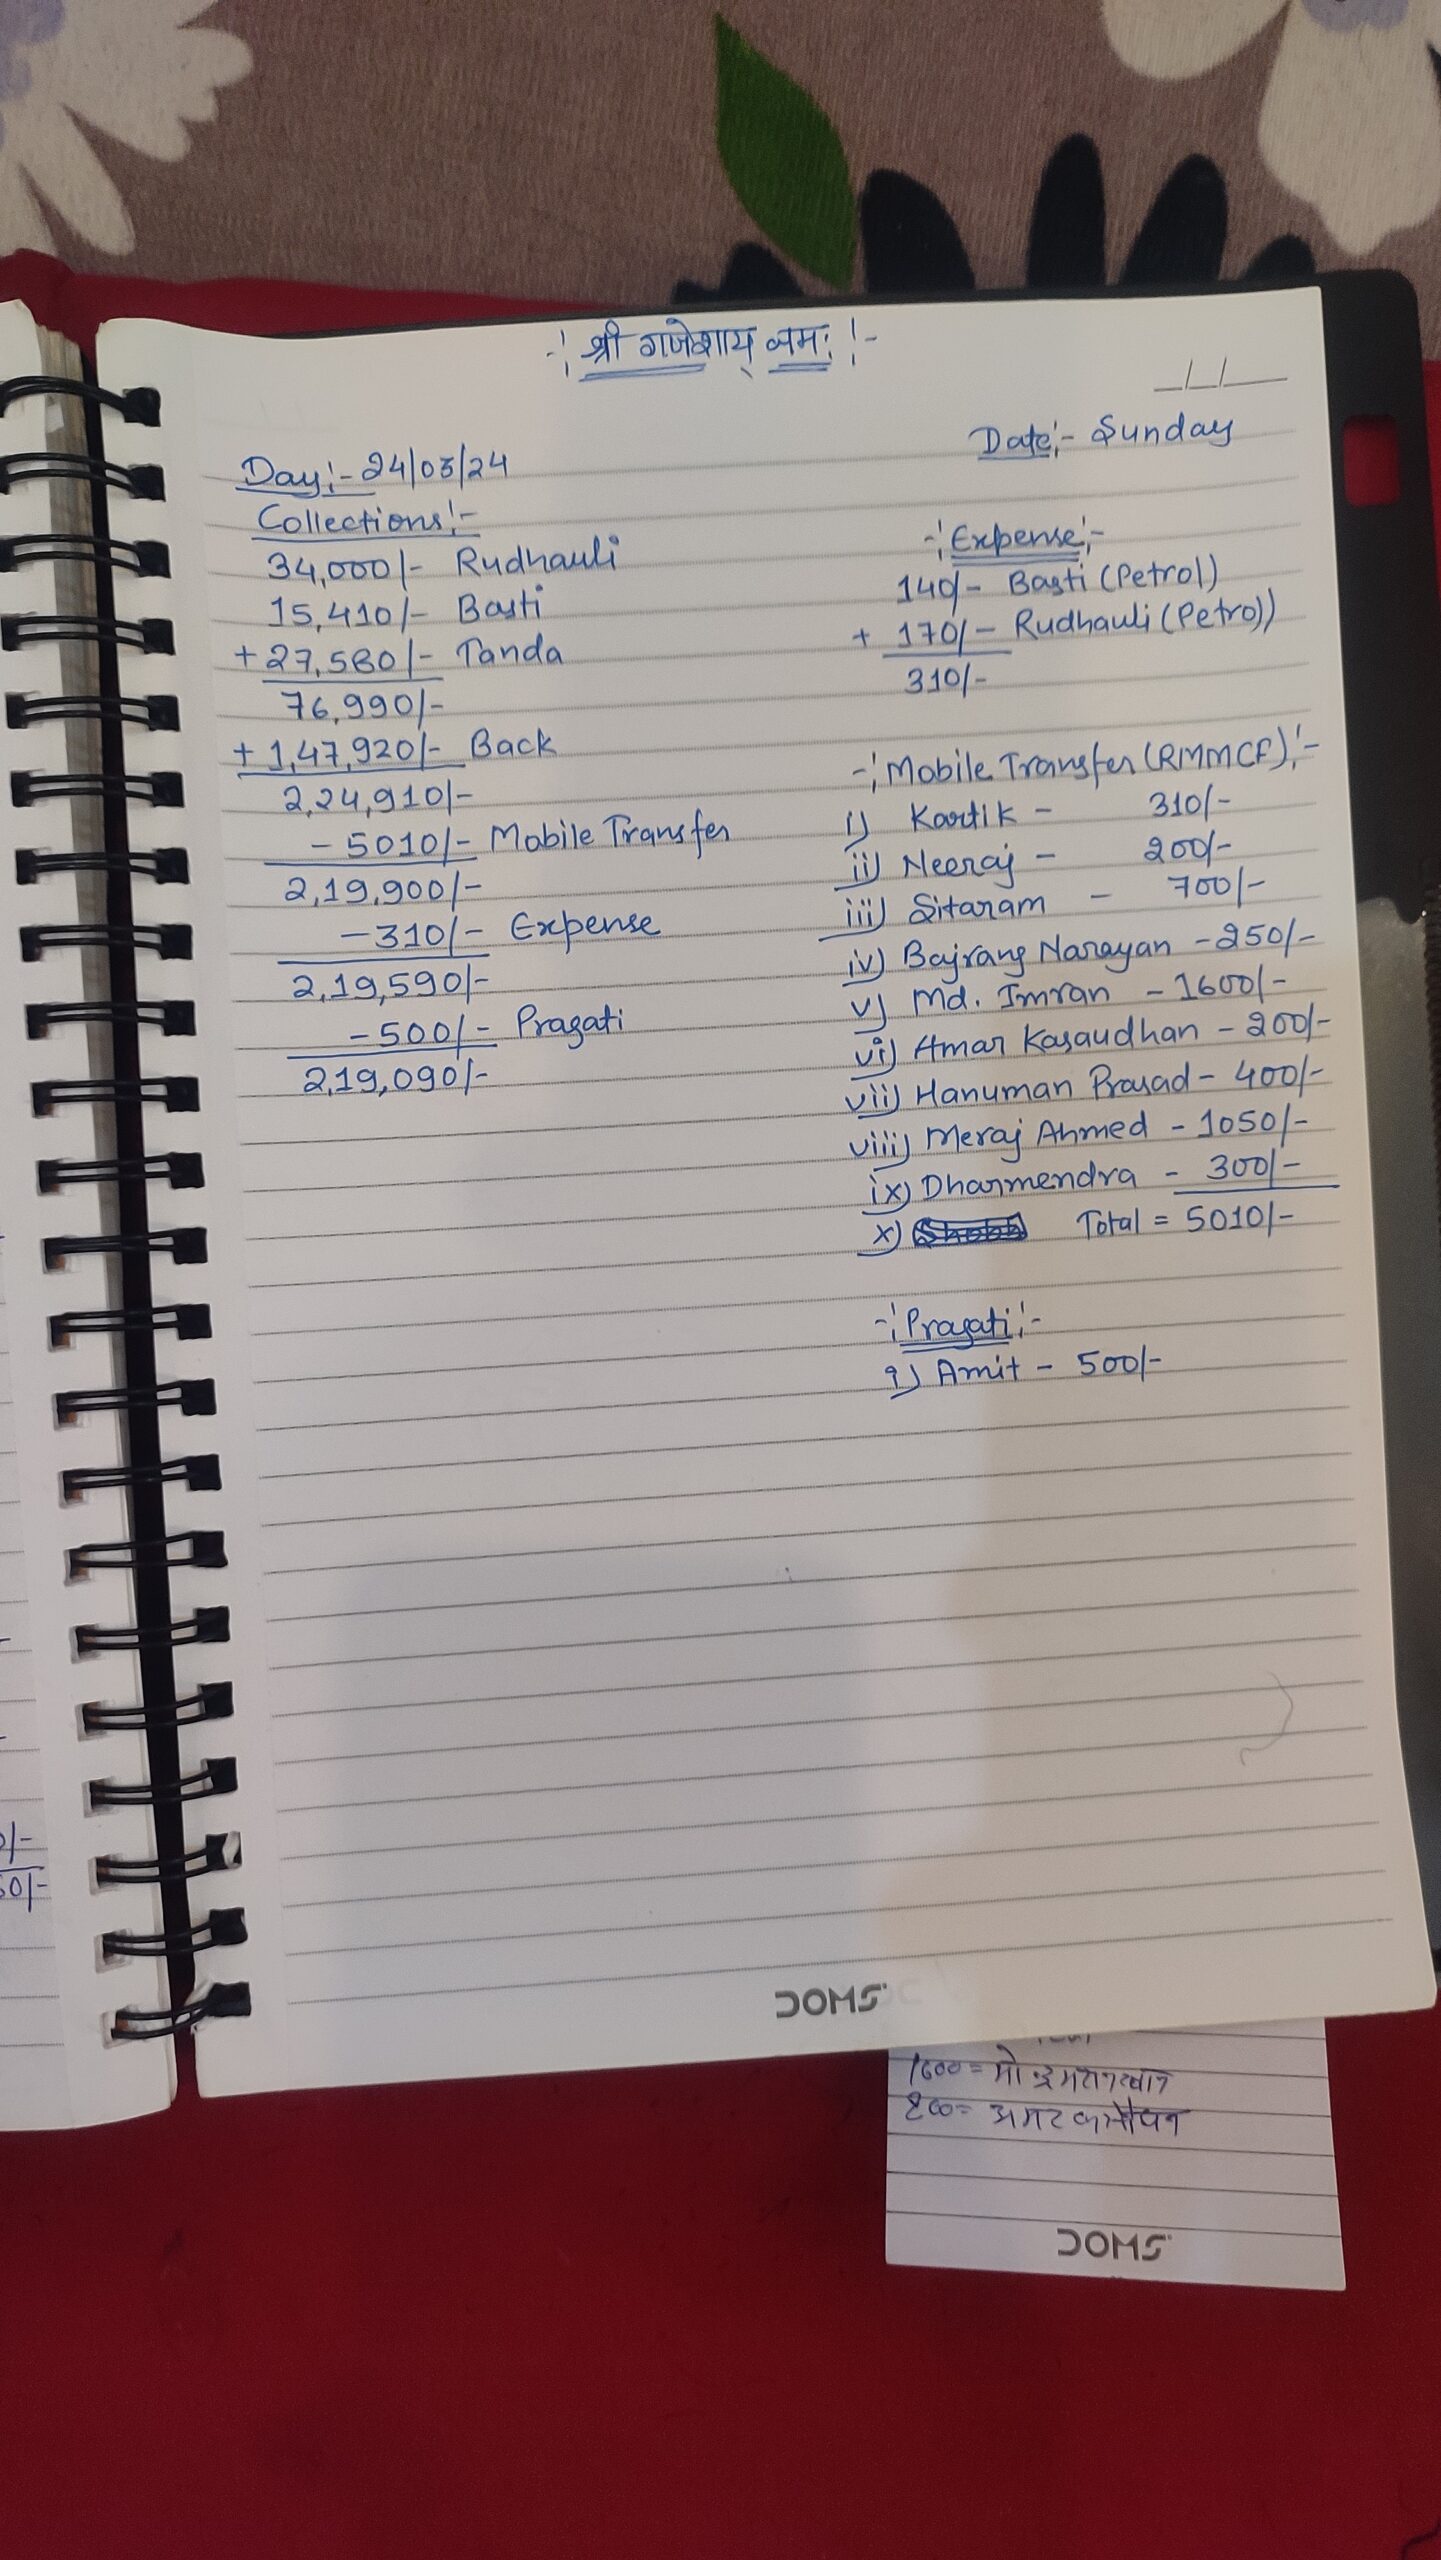 -: श्री गणेशाय् नमः :-
_/_/__
Day:- 24/03/24
Date:- Sunday
Collections:-
34,000/- Rudhauli
15,410/- Basti
+27,580/- Tanda
76,990/-
+1,47,920/- Back
2,24,910/-
-5010/- Mobile Transfer
2,19,900/-
-310/- Expense
2,19,590/-
-500/- Pragati
2,19,090/-
-: Expense:-
140/- Basti (Petrol)
+ 170/- Rudhauli (Petrol)
310/-
-: Mobile Transfer (RMMCF):-
i) Kartik - 310/-
ii) Neeraj - 200/-
iii) Sitaram - 700/-
iv) Bajrang Narayan - 250/-
v) Md. Imran - 1600/-
vi) Amar Kasaudhan - 200/-
vii) Hanuman Prasad - 400/-
viii) Meraj Ahmed - 1050/-
ix) Dharmendra - 300/-
x) Total = 5010/-
-: Pragati:-
i) Amit - 500/-
DOMS
1600 = मो इमरान खान
200= अमर
DOMS
0/-
50/-